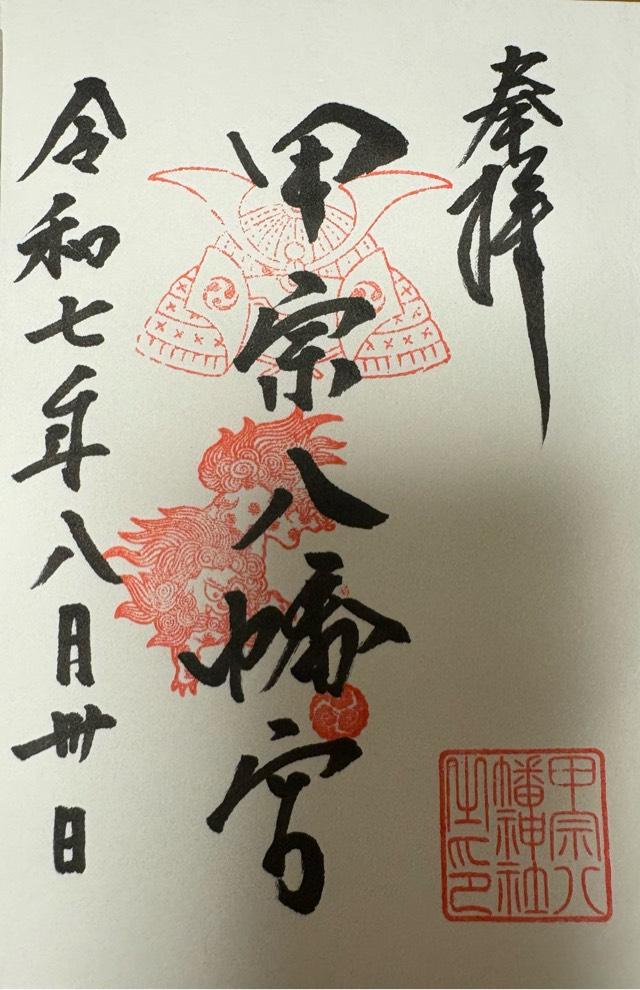 奉拝
甲宗八幡宮
令和七年八月卅日
甲宗八
幡神社
之印